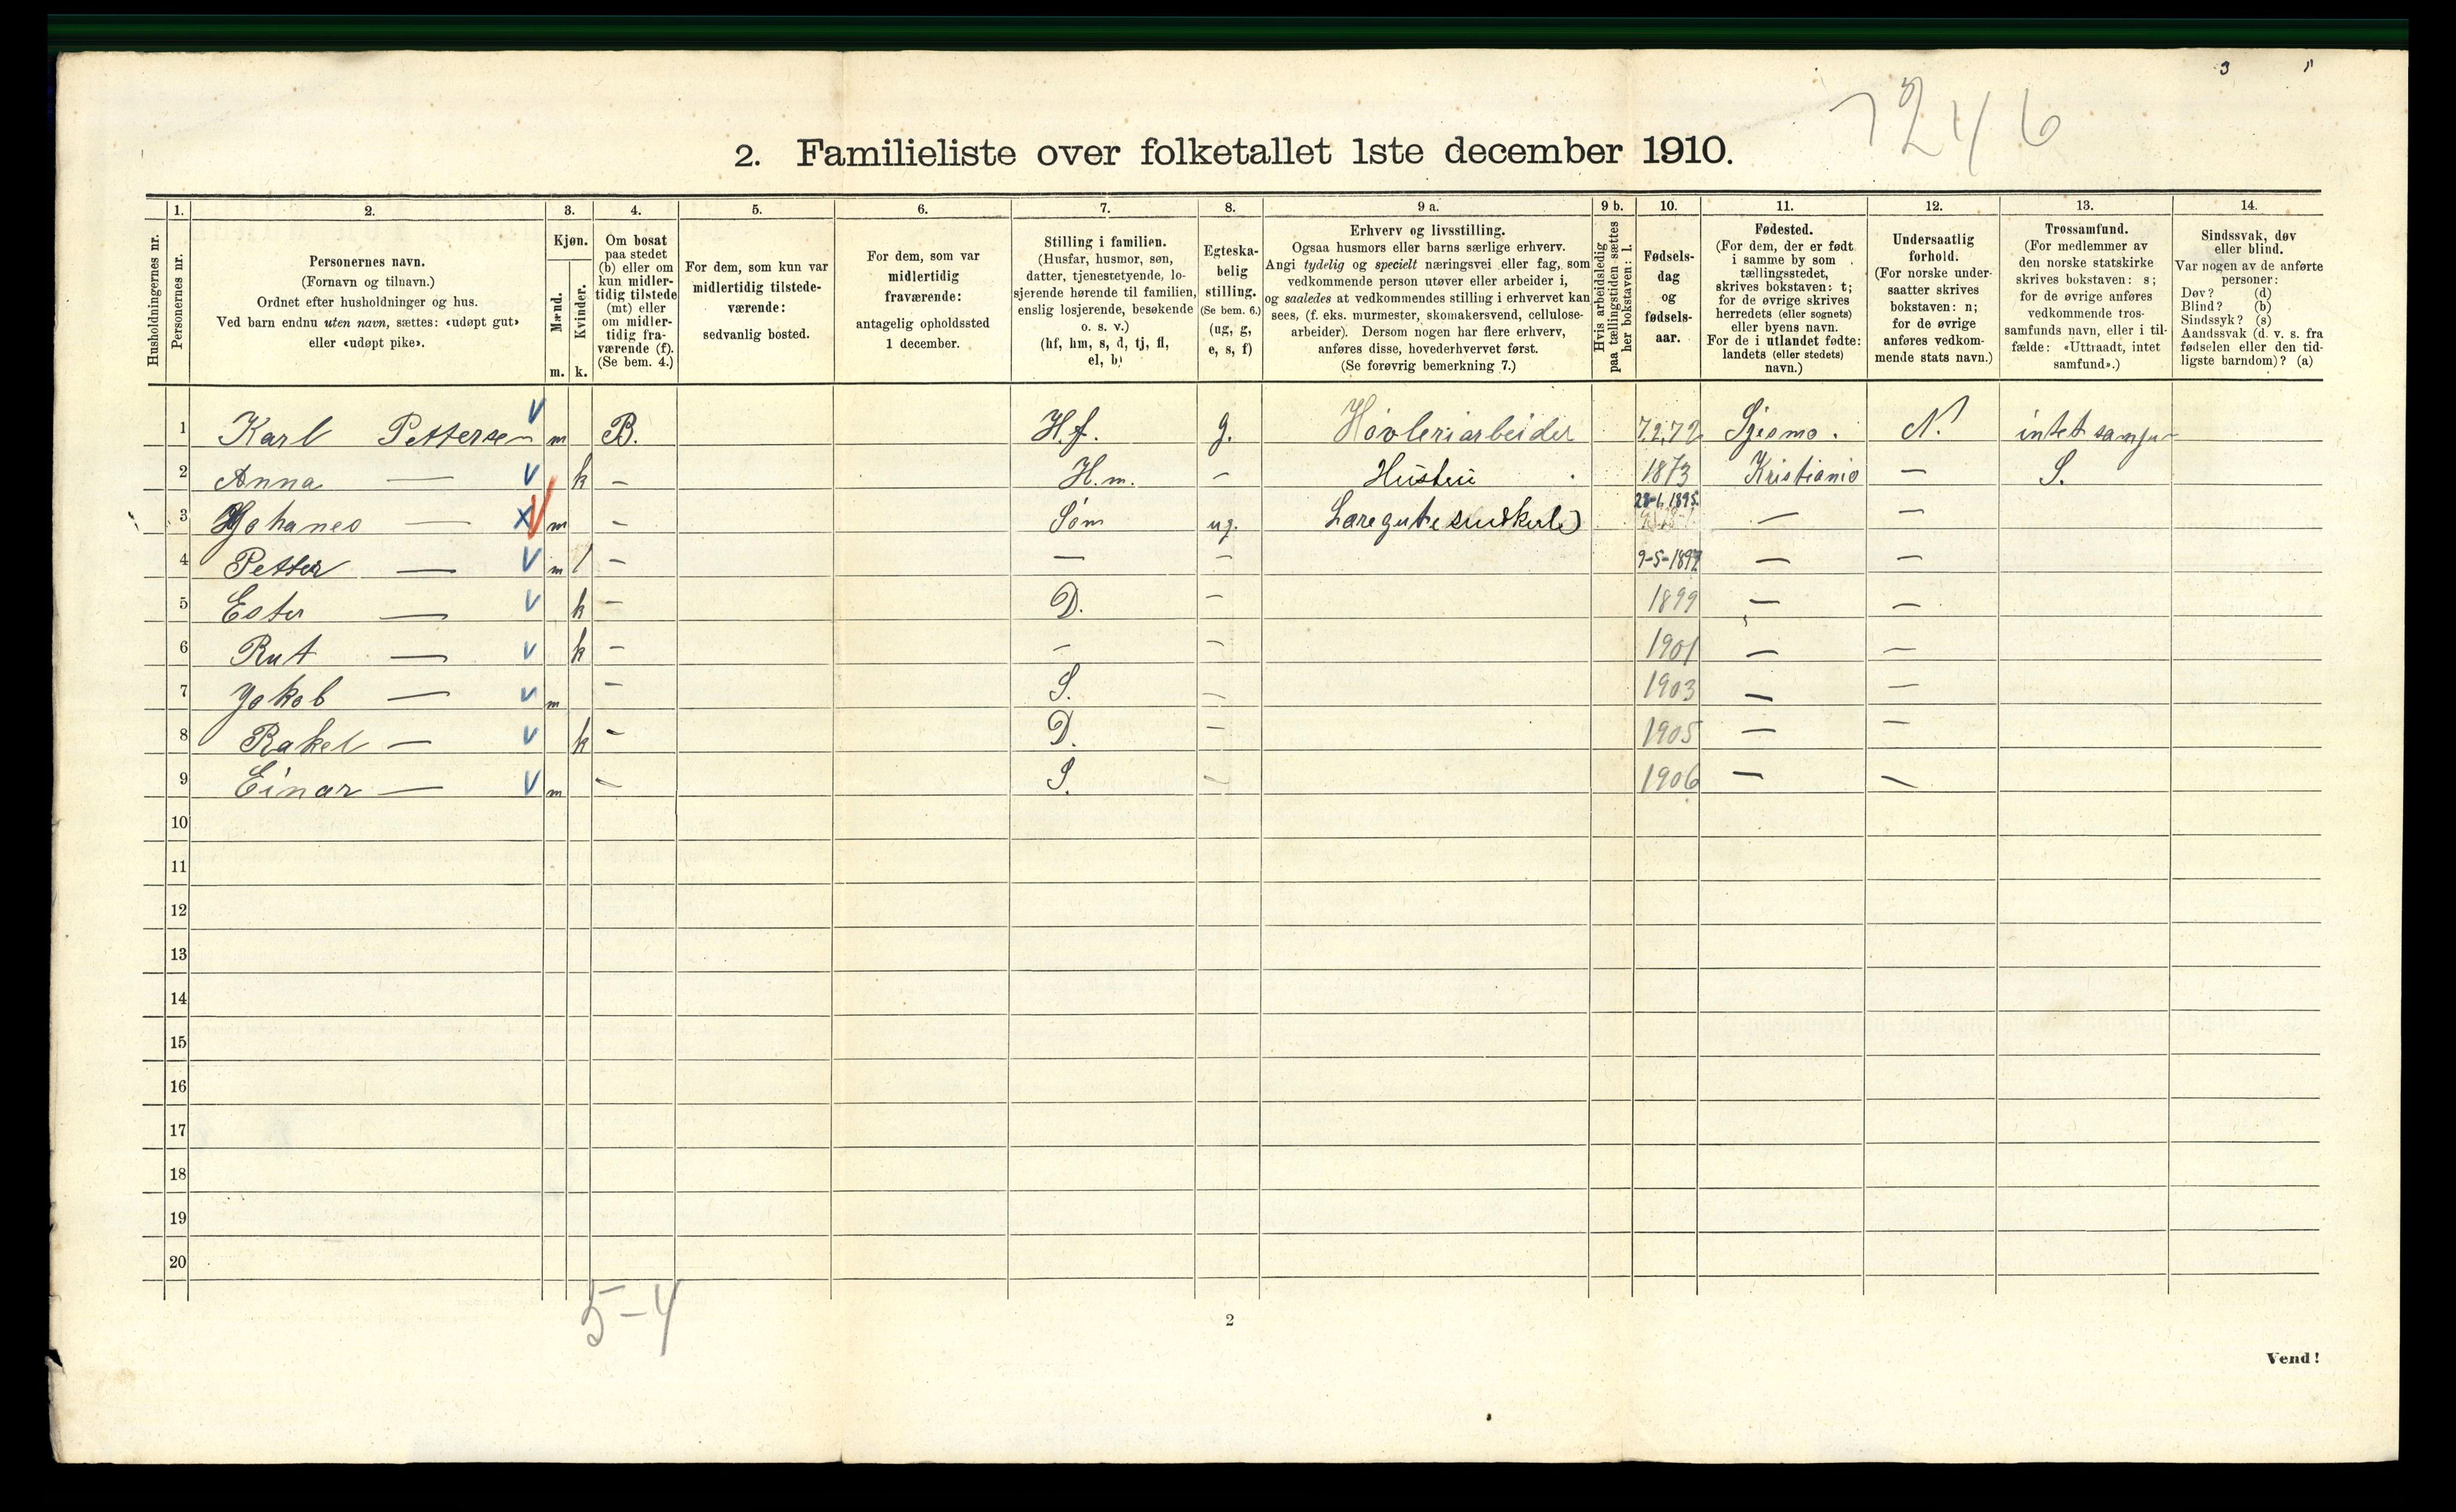 3
7246
2. Familieliste over folketallet 1ste december 1910.
Husholdningernes nr.
1. Personernes nr.
2. Personernes navn.
(Fornavn og tilnavn.)
Ordnet efter husholdninger og hus.
Ved barn endnu uten navn, sættes: «udøpt gut»
eller «udøpt pike».
3. Kjøn.
Mænd. m.
Kvinder. k.
4. Om bosat
paa stedet
(b) eller om
kun midler-
tidig tilstede
(mt) eller
om midler-
tidig fra-
værende (f).
(Se bem. 4.)
5. For dem, som kun var
midlertidig tilstede-
værende:
sedvanlig bosted.
6. For dem, som var
midlertidig
fraværende:
antagelig opholdssted
1 december.
7. Stilling i familien.
(Husfar, husmor, søn,
datter, tjenestetyende, lo-
sjerende hørende til familien,
enslig losjerende, besøkende
o. s. v.)
(hf, hm, s, d, tj, fl,
el, b)
8. Egteska-
belig
stilling.
(Se bem. 6.)
(ug, g,
e, s, f)
9 a. Erhverv og livsstilling.
Ogsaa husmors eller barns særlige erhverv.
Angi tydelig og specielt næringsvei eller fag, som
vedkommende person utøver eller arbeider i,
og saaledes at vedkommendes stilling i erhvervet kan
sees, (f. eks. murmester, skomakersvend, cellulose-
arbeider). Dersom nogen har flere erhverv,
anføres disse, hovederhvervet først.
(Se forøvrig bemerkning 7.)
9 b. Hvis arbeidsledig
paa tællingstiden sættes
her bokstaven: l.
10. Fødsels-
dag
og
fødsels-
aar.
11. Fødested.
(For dem, der er født
i samme by som
tællingsstedet,
skrives bokstaven: t;
for de øvrige skrives
herredets (eller sognets)
eller byens navn.
For de i utlandet fødte:
landets (eller stedets)
navn.)
12. Undersaatlig
forhold.
(For norske under-
saatter skrives
bokstaven: n;
for de øvrige
anføres vedkom-
mende stats navn.)
13. Trossamfund.
(For medlemmer av
den norske statskirke
skrives bokstaven: s;
for de øvrige anføres
vedkommende tros-
samfunds navn, eller i til-
fælde: «Uttraadt, intet
samfund».)
14. Sindssvak, døv
eller blind.
Var nogen av de anførte
personer:
Døv? (d)
Blind? (b)
Sindssyk? (s)
Aandssvak (d. v. s. fra
fødselen eller den tid-
ligste barndom)? (a)
1 Karl Pettersen m B. H.f. g. Høvleriarbeider 7.2.72 N. intet samfu
2 Anna — k — H.m. — Hustru 1873 Kristiania — S.
3 Johanes — m — Søn ug. 1895 — —
4 Petter — m — — — 9-5-1897 — —
5 Ester — k — D. — 1899 — —
6 Rut — k — — — 1901 — —
7 Jakob — m — S. — 1903 — —
8 Rakel — k — D. — 1905 — —
9 Einar — m — S. — 1906 — —
10
11
12
13
14
15
16
17
18
19
20
5-4
2
Vend!